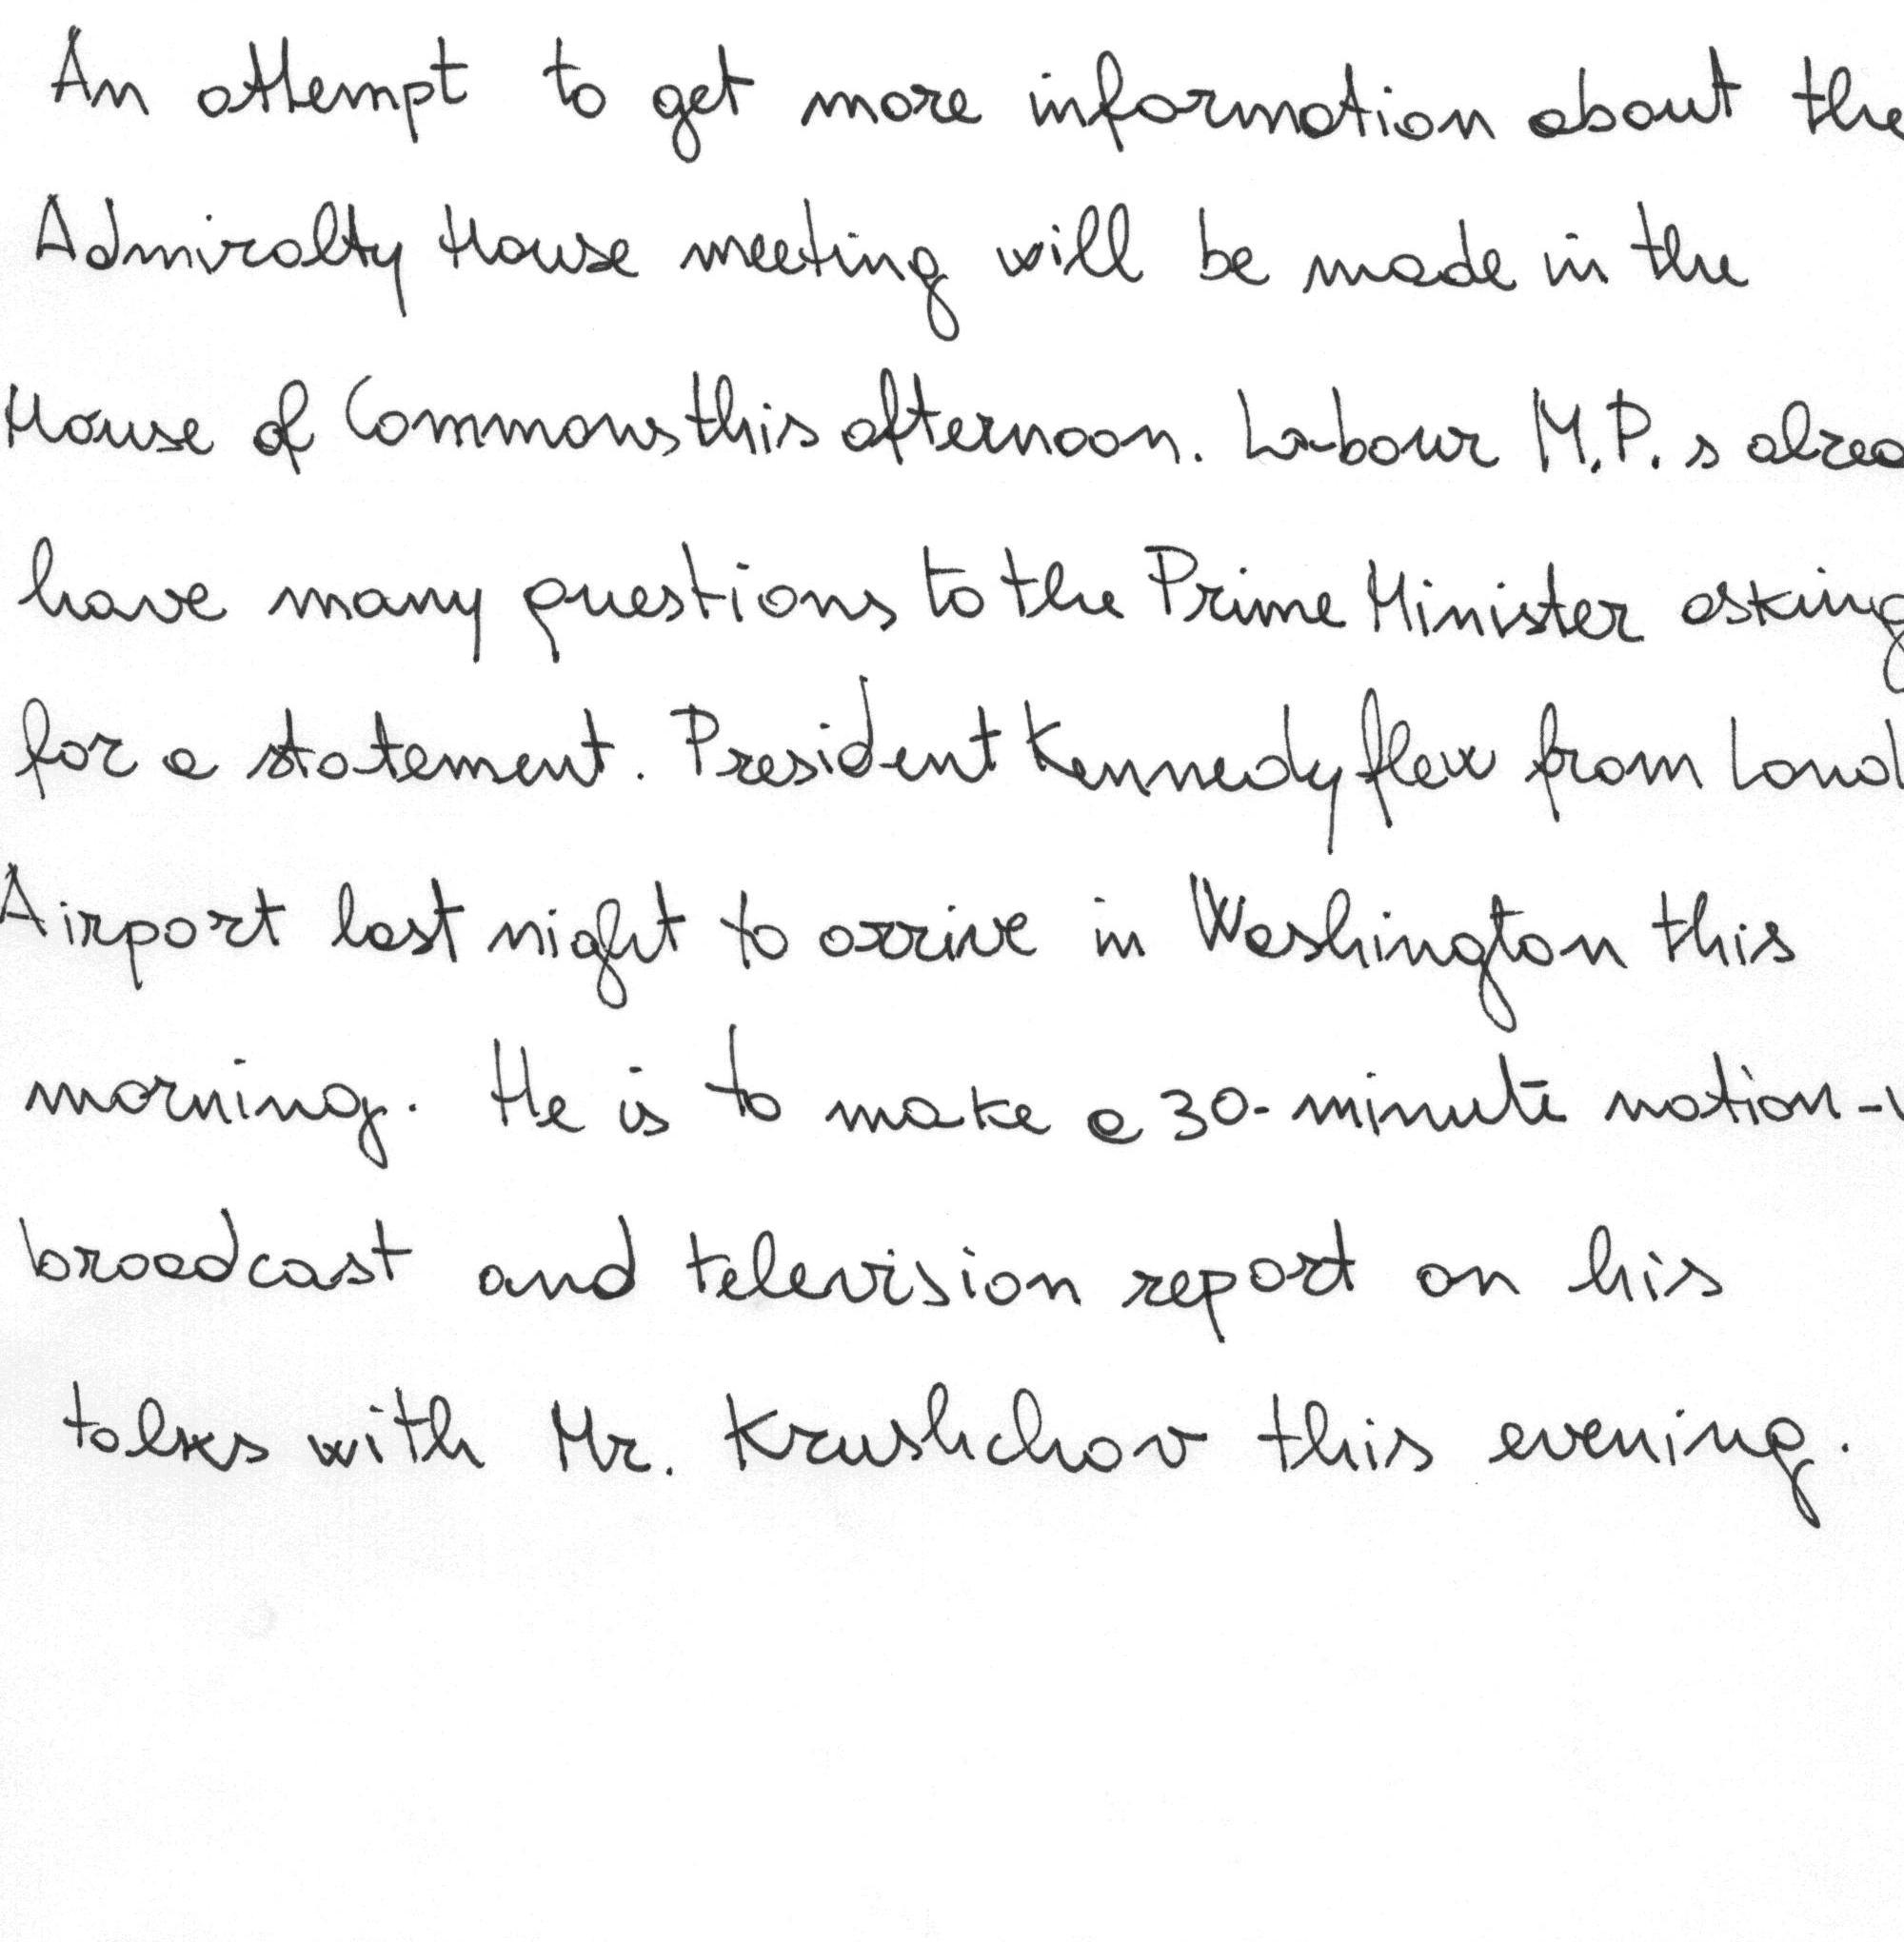 An attempt to get more information about the
Admiralty House meeting will be made in the
House of Commons this afternoon. Labour M.P.s alrea
have many questions to the Prime Minister asking
for a statement. President Kennedy flew from Lond
Airport last night to arrive in Washington this
morning. He is to make a 30-minute nation-
broadcast and television report on his
talks with Mr. Krushchov this evening.